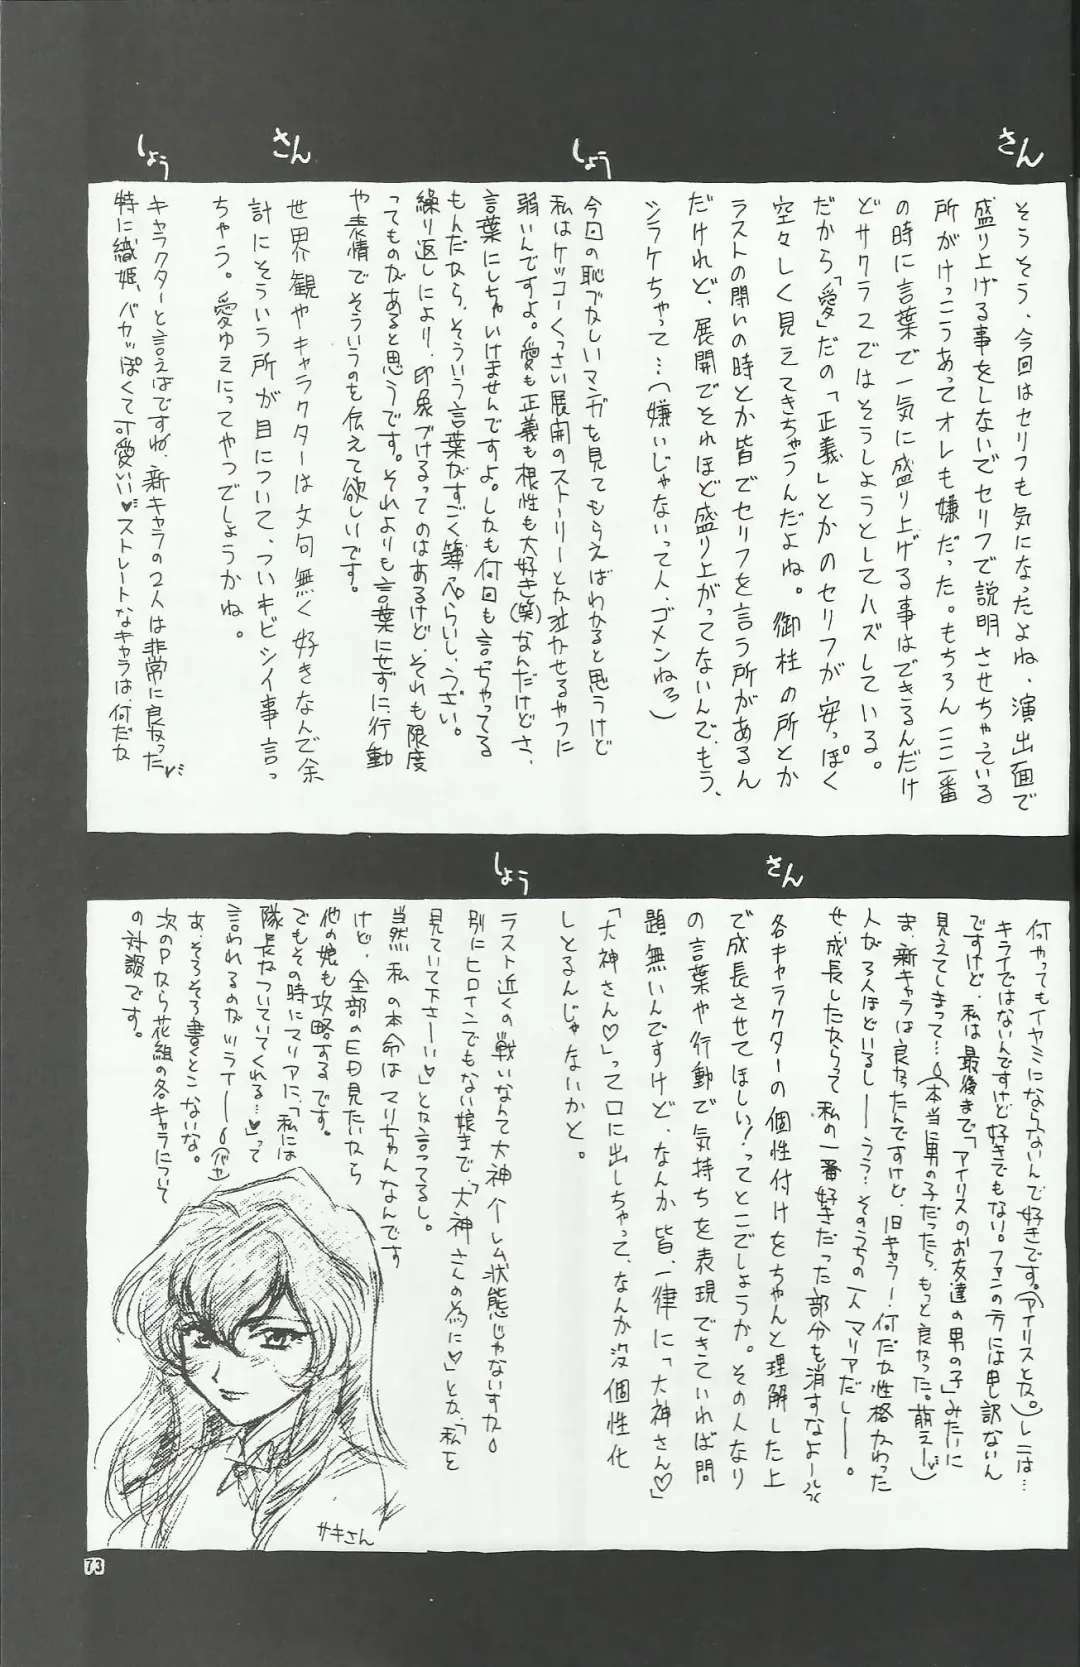 さん
そうそう、今回はセリフも気になったよね、演出面で
盛り上げる事をしないでセリフで説明させちゃっている
所がけっこうあってオレも嫌だった。もちろんここ一番
の時に言葉で一気に盛り上げる事はできるんだけ
どサクラ2ではそうしようとしてハズしている。
だから「愛」だの「正義」とかのセリフが安っぽく
空々しく見えてきちゃうんだよね。御柱の所とか
ラストの闘いの時とか皆でセリフを言う所があるん
だけれど、展開でそれほど盛り上がってないんで、もう、
シラケちゃって…(嫌いじゃないって人、ゴメンねろ)
しょう
今回の恥ずかしいマンガを見てもらえばわかると思うけど
私はケッコーくっさい展開のストーリーとか泣かせるやつに
弱いんですよ。愛も正義も根性も大好き(笑)なんだけどさ、
言葉にしちゃいけませんですよ。しかも何回も言っちゃってる
もんだから、そういう言葉がすごく薄っぺらいし、うざい。
繰り返しにより、印象づけるってのはあるけど、それも限度
ってものがあると思うです。それよりも言葉にせずに、行動
や表情でそういうのを伝えて欲しいです。
さん
世界観やキャラクターは文句無く好きなんで余
計にそういう所が目について、ついキビシイ事言っ
ちゃう。愛ゆえにってやつでしょうかね。
しょう
キャラクターと言えばですね、新キャラの2人は非常に良かった
特に織姫、バカッぽくて可愛いい♥ストレートなキャラは、何だか
何やってもイヤミにならないんで好きです。(アイリスとか。)レニは…
キライではないんですけど好きでもない。ファンの方には申し訳ないん
ですけど、私は最後まで「アイリスのお友達の男の子」みたいに
見えてしまって…(本当に男の子だったら、もっと良かった。萌え〜)
ま、新キャラは良かったんですけど、旧キャラー、何だか性格かわった
人が3人ほどいるしーううう、そのうちの一人マリアだしー。
せ、成長したからって私の一番好きだった部分を消すなよー
さん
各キャラクターの個性付けをちゃんと理解した上
で成長させてほしい!ってとこでしょうか。その人なり
の言葉や行動で気持ちを表現できていれば問
題無いんですけど、なんか皆、一律に「大神さん♡」
「大神さん♡」って口に出しちゃって、なんか没個性化
しとるんじゃないかと。
しょう
ラスト近くの戦いなんて大神ハーレム状態じゃないすか
別にヒロインでもない娘まで、「大神さんの為に♡」とか「私を
見ていて下さーい♡」とか言ってるし。
当然私の本命はマリちゃんなんです
けど、全部のED見たいから
他の娘も攻略するです。
でもその時にマリアに、「私には
隊長がついていてくれる…♡」って
言われるのがツライー
あ、そろそろ書くとこないな。
次のPから花組の各キャラについて
の対談です。
サキさん
73